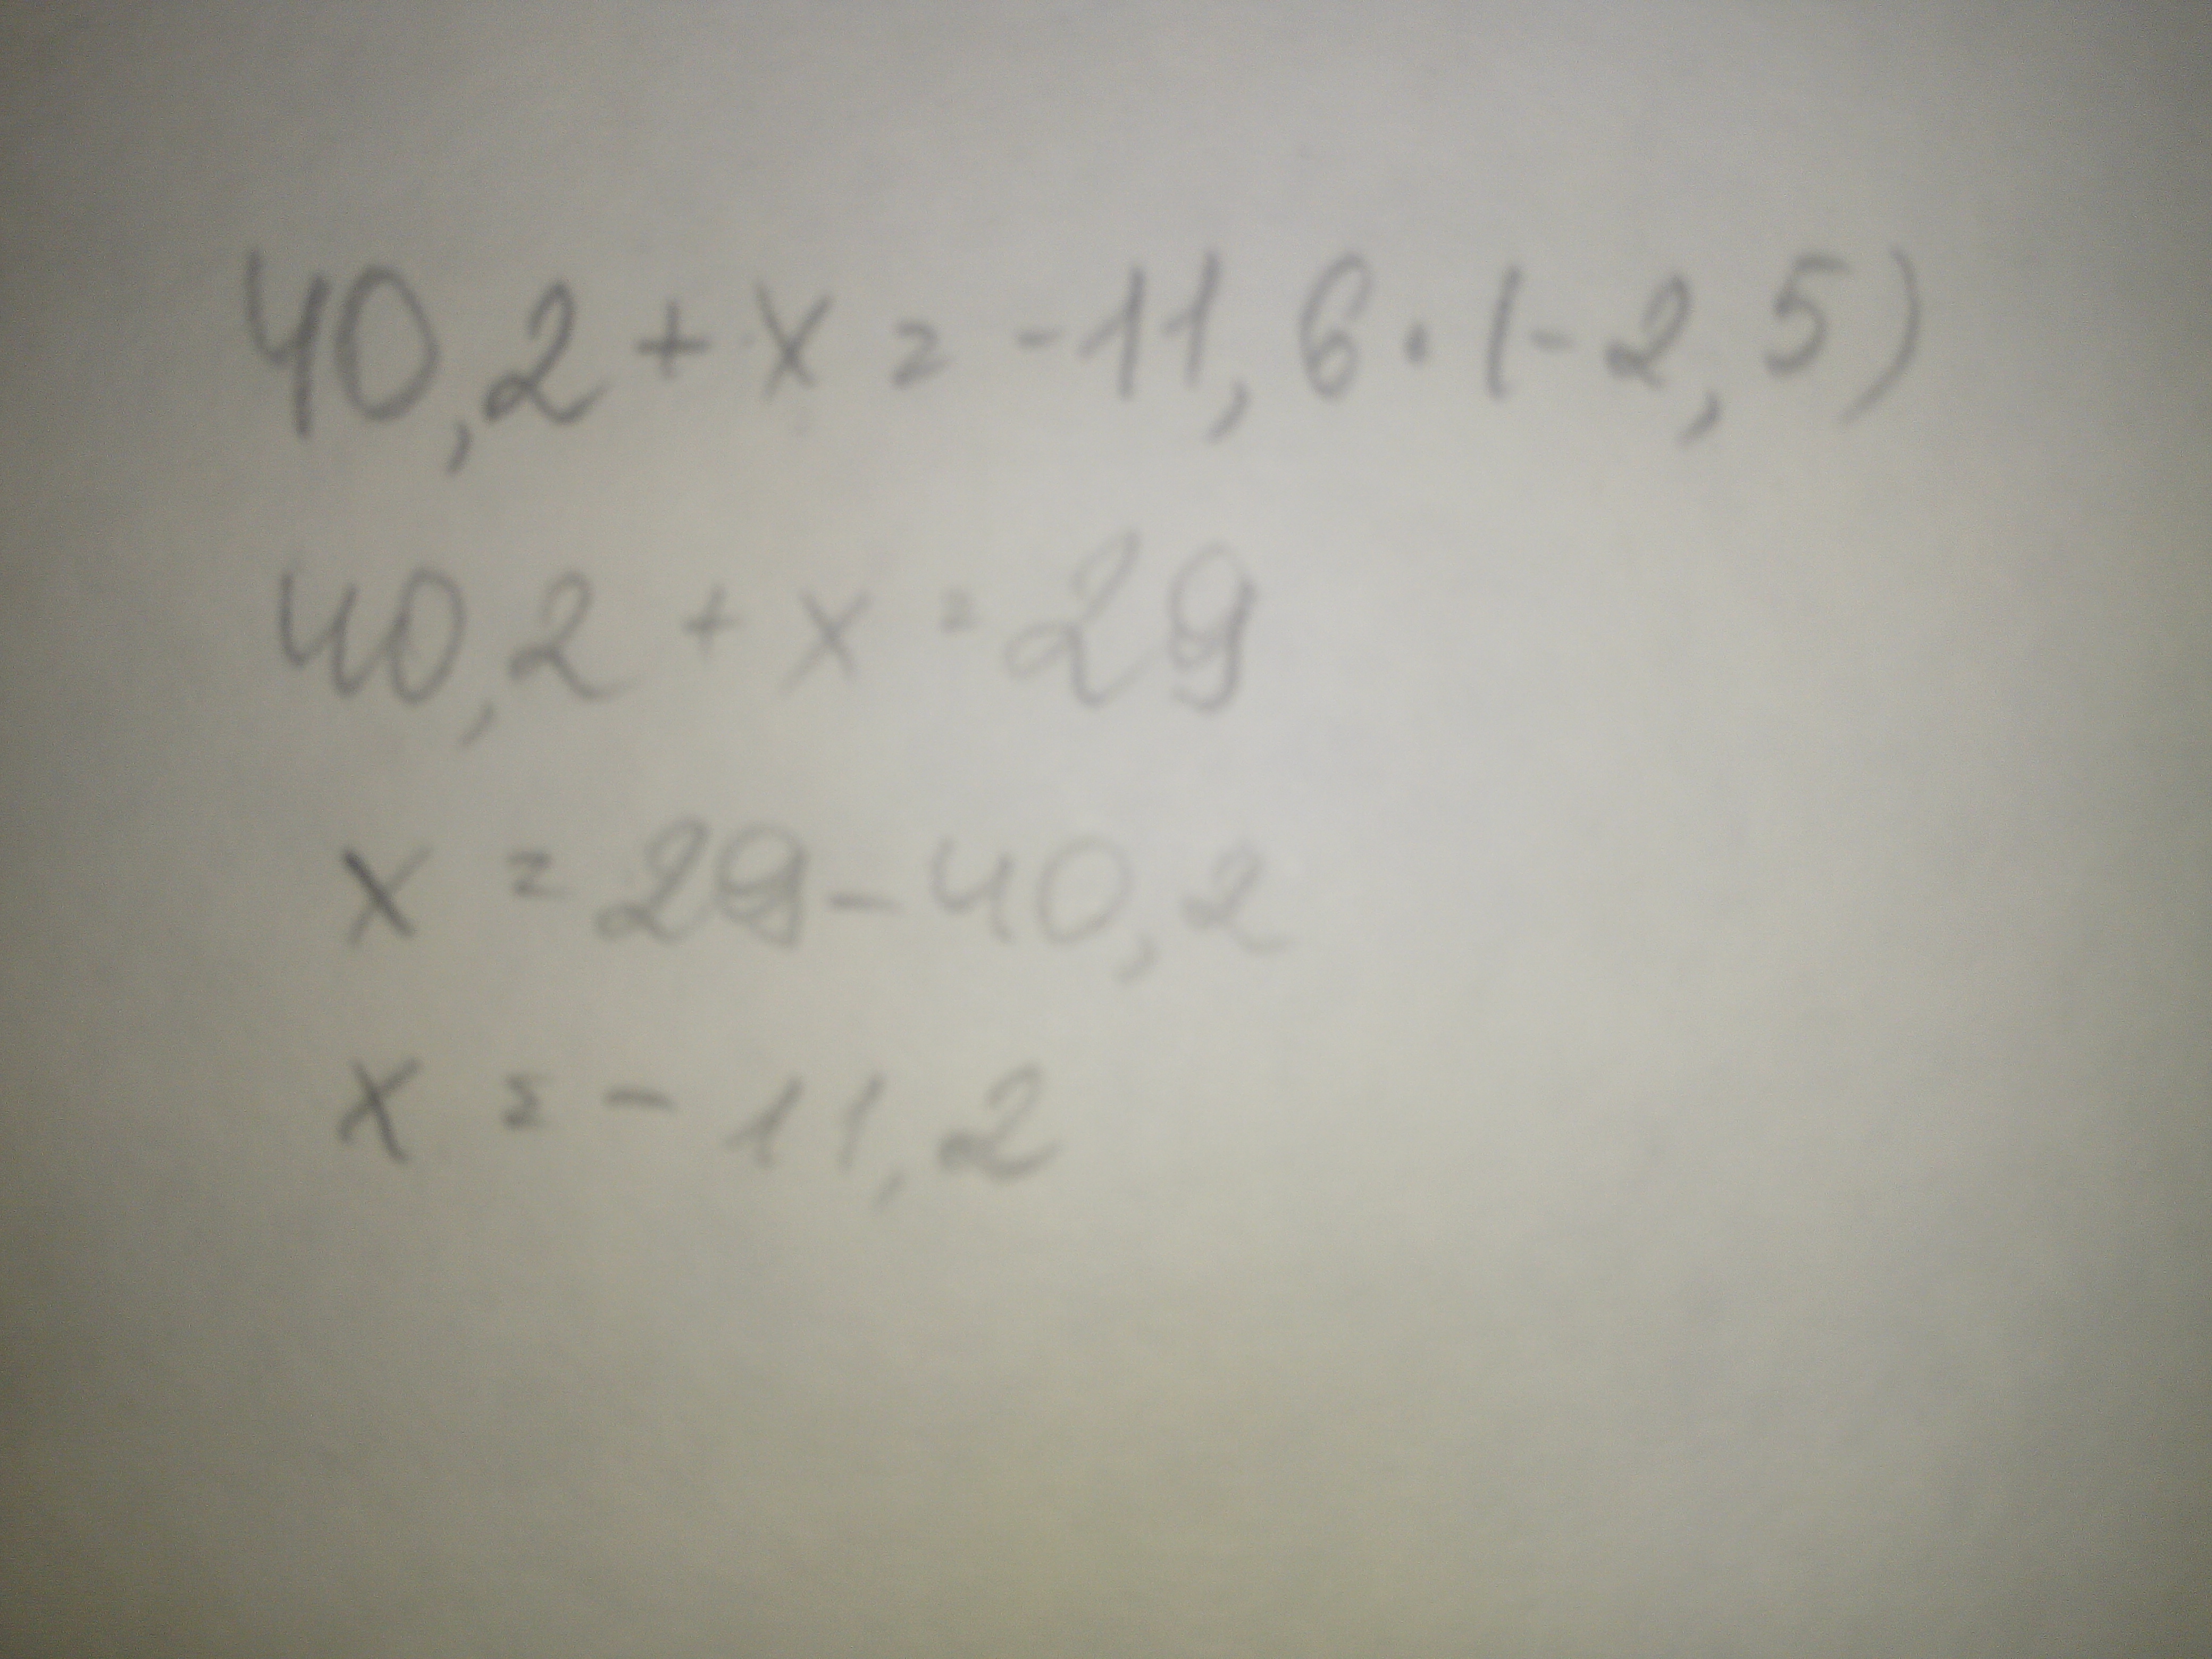 40,2 + x = -11,6 · (-2,5)
40,2 + x = 29
x = 29 - 40,2
x = - 11,2